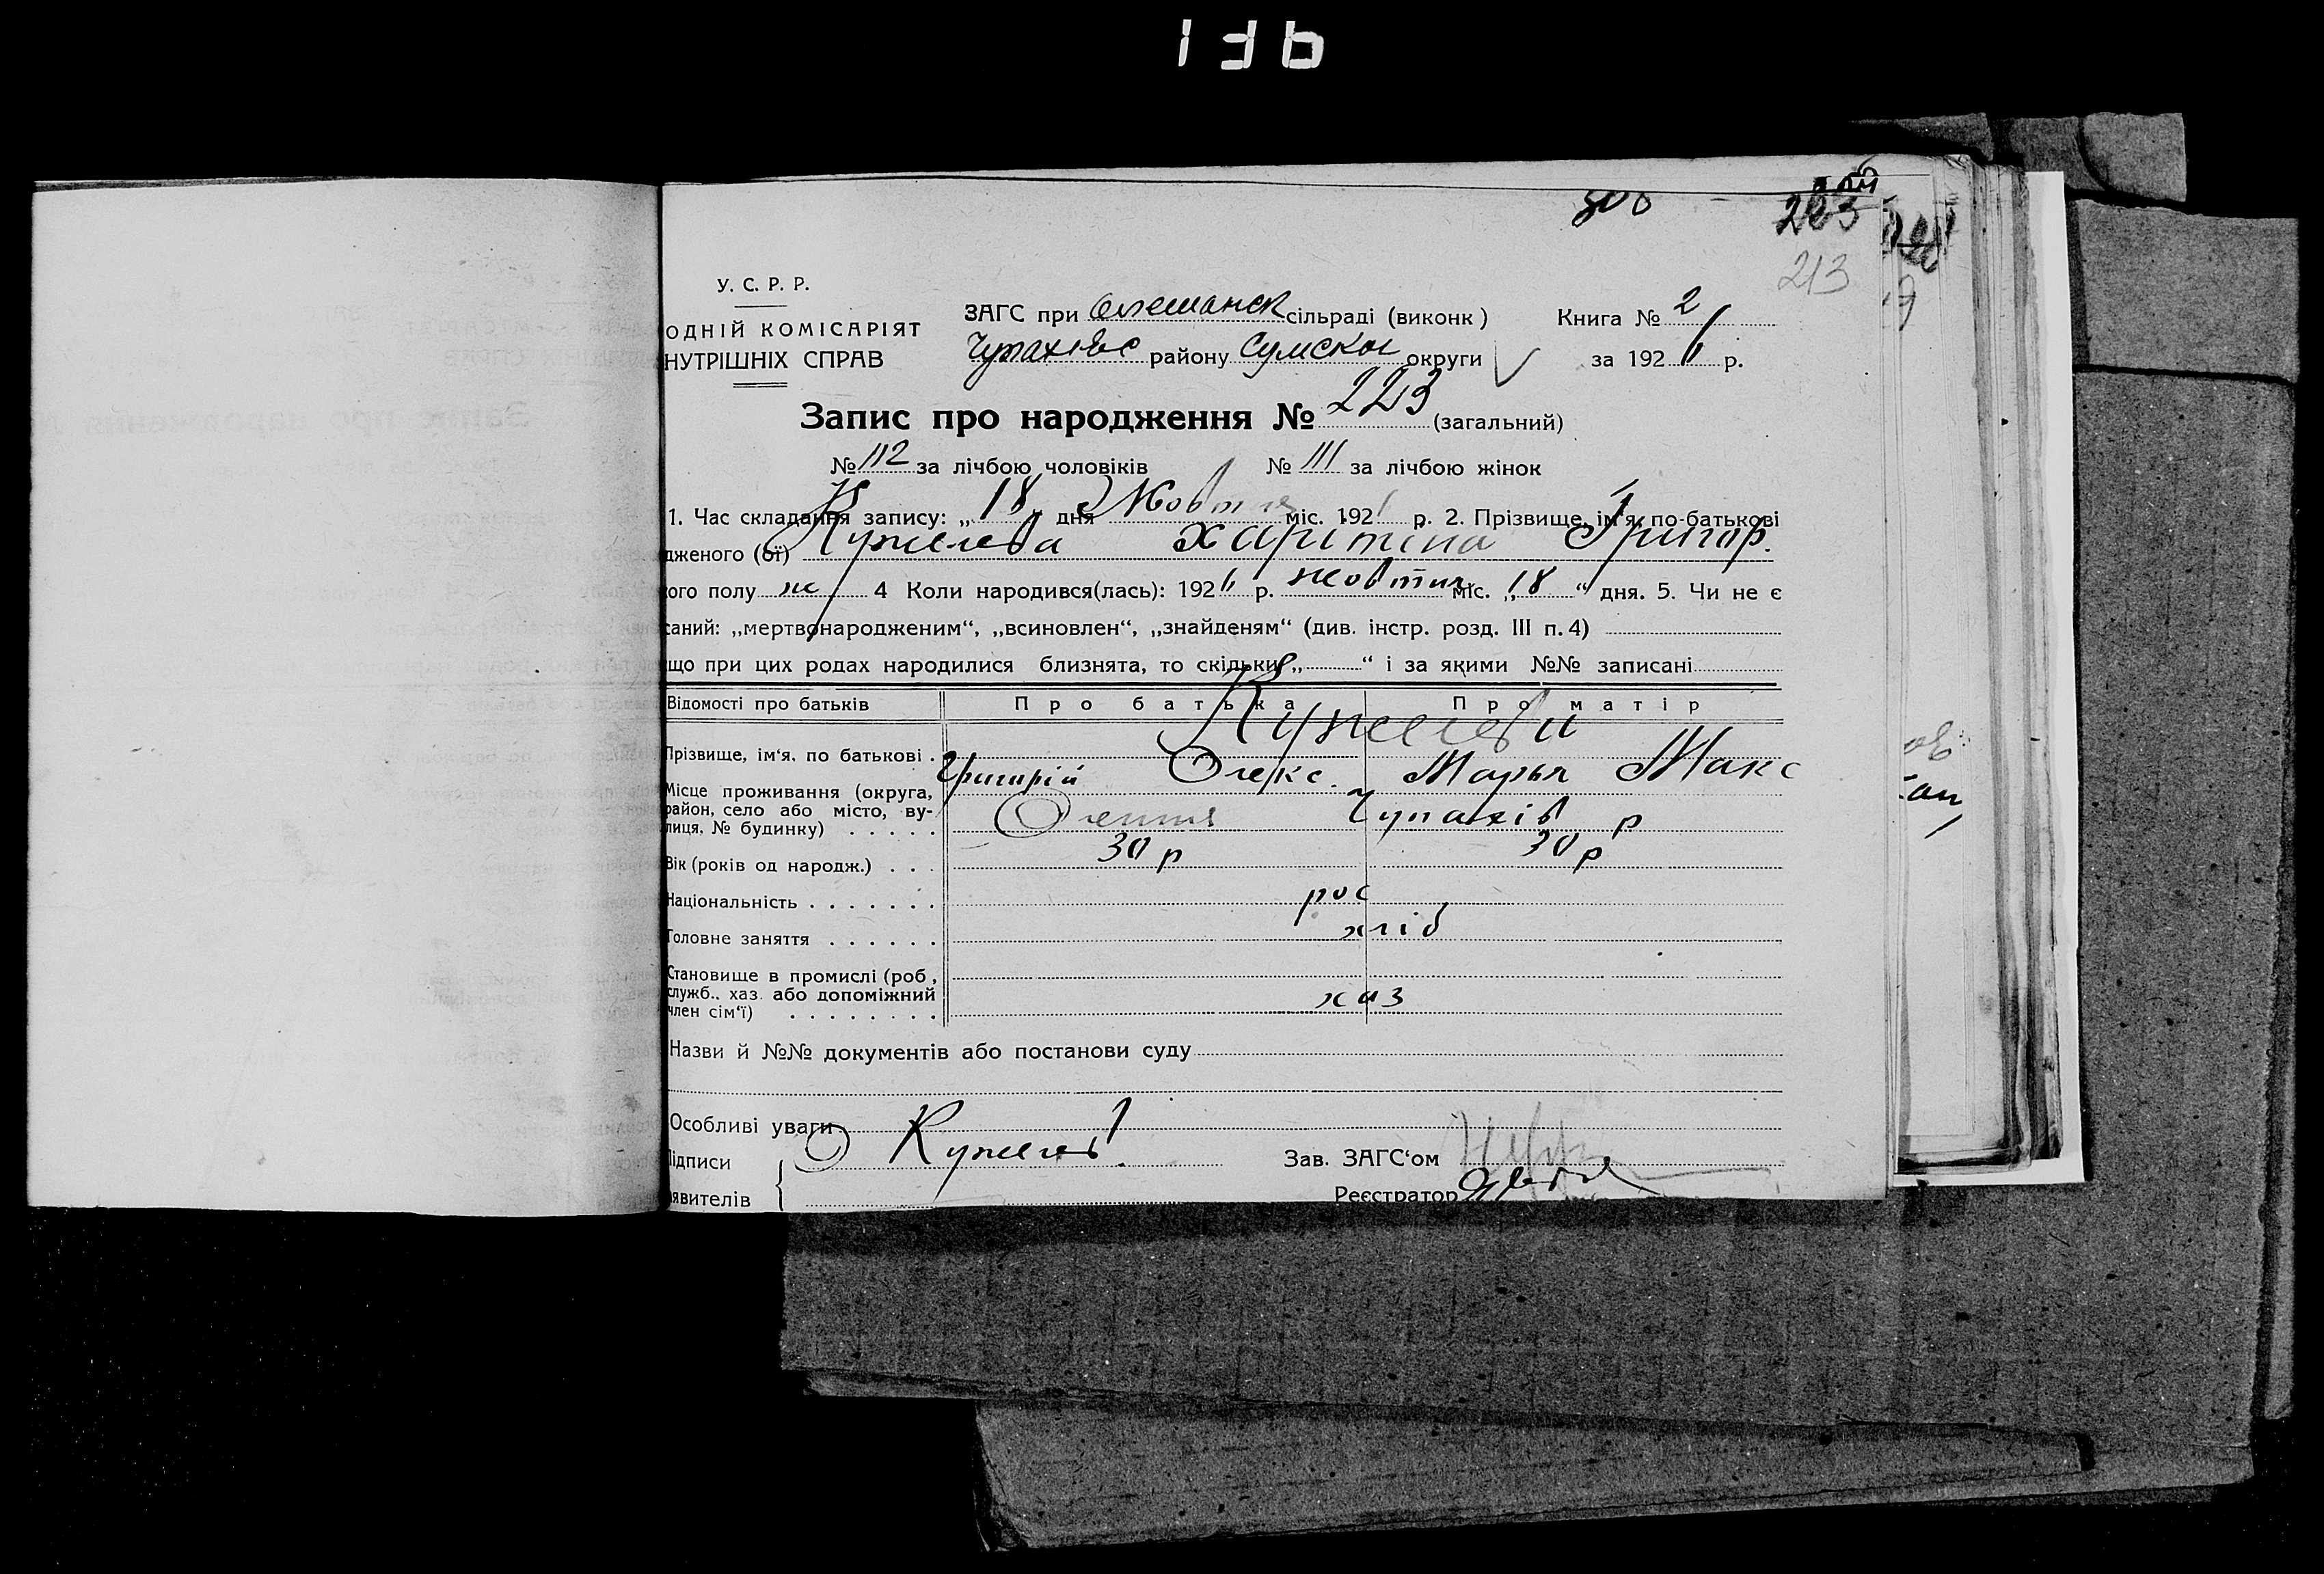 136
300
213
У. С. Р. Р.
ОДНІЙ КОМІСАРІЯТ
НУТРІШНІХ СПРАВ
ЗАГС при Олешанск сільраді (виконк)
Книга № 2
Чупахівс району Сумскої округи
за 192 р.
Запис про народження № 223 (загальний)
№ 112 за лічбою чоловіків № 111 за лічбою жінок
1. Час складання запису: „ 18 „ дня Жовтня міс. 192 р. 2. Прізвище, ім'я, по-батькові
дженого (ої) Кужелева Харітіна Григор.
ого полу ж 4 Коли народився(лась): 192 р. жовтня міс. „ 18 “ дня. 5. Чи не є
саний: „мертвонародженим“, „всиновлен“, „знайденям“ (див. інстр. розд. III п. 4)
що при цих родах народилися близнята, то скільки „ “ і за якими №№ записані
Відомості про батьків Про батька Про матір
Кужелеви
Прізвище, ім'я, по батькові .
Григорій Олекс. Марья Макс
Місце проживання (округа,
район, село або місто, ву-
лиця, № будинку) . . . . .
Олешня Чупахів р
Вік (років од народж.) . . . 30 р 30 р
Національність . . . . . . . рос
Головне заняття . . . . . . хліб
Становище в промислі (роб,
служб., хаз. або допоміжний
член сім'ї) . . . . . . . . хаз
Назви й №№ документів або постанови суду
Особливі уваги
ідписи О Кужелев
явителів
Зав. ЗАГС'ом
Реєстратор